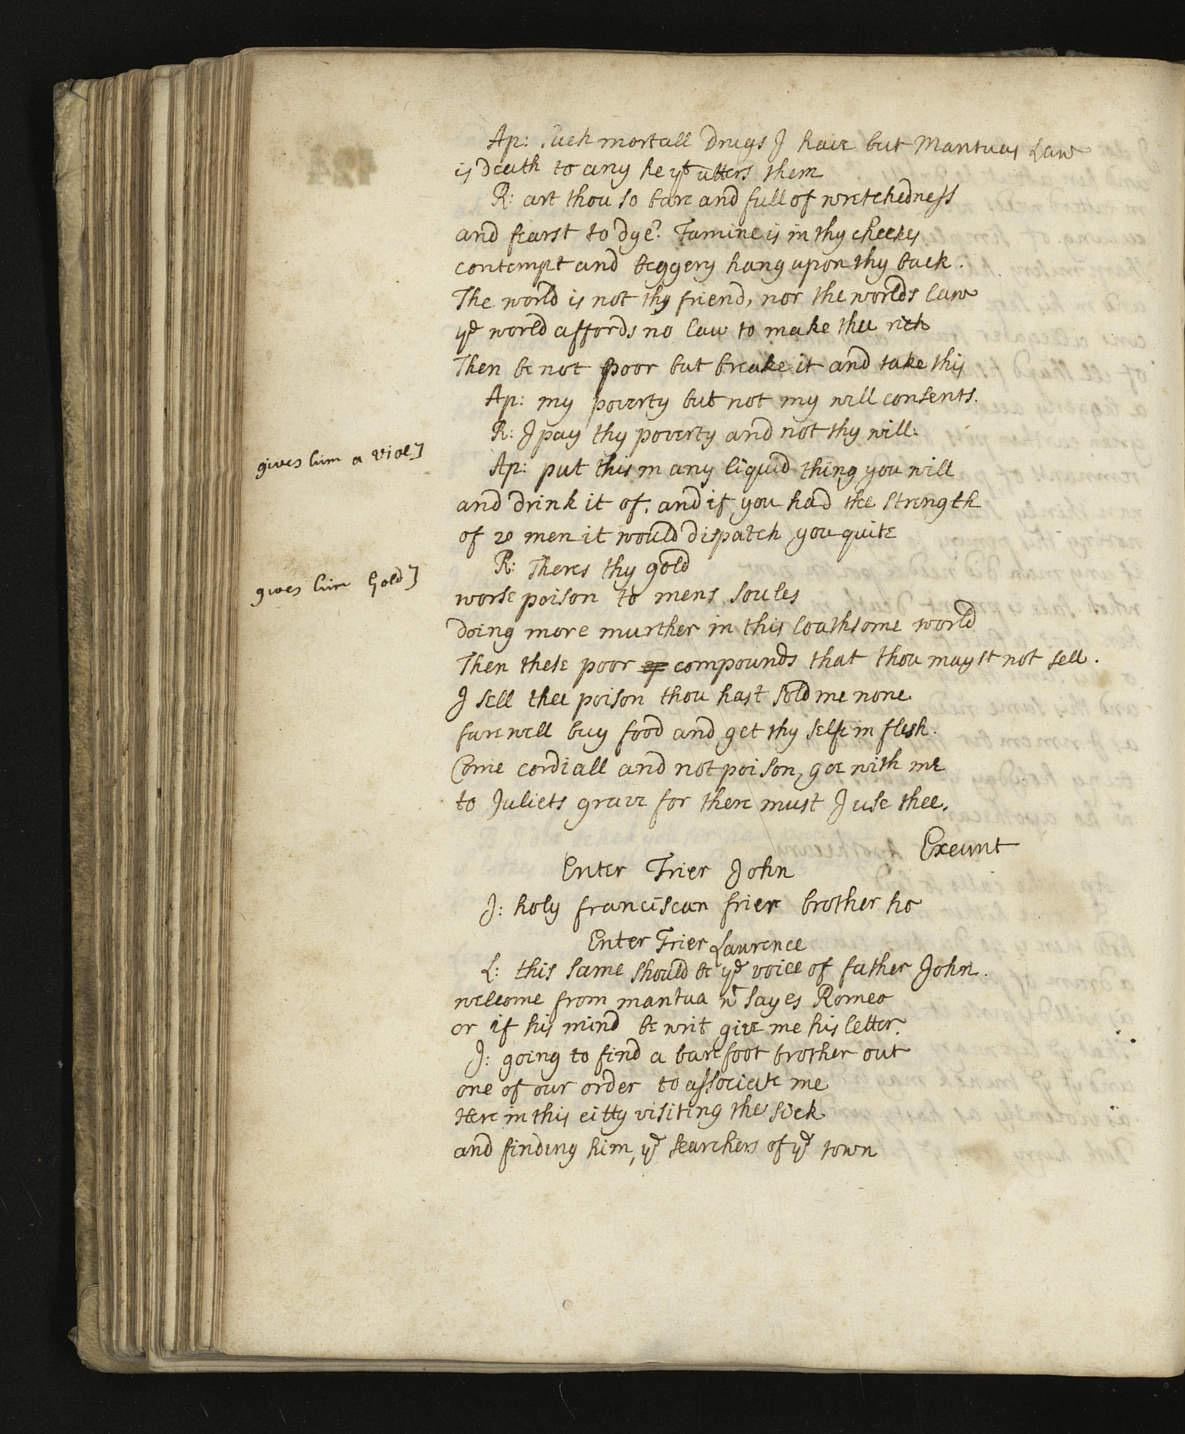 Ap: Such mortall Drugs I have but Mantuas Law
is Death to any he yt utters them
R: art thou so bare and full of wretchedness
and fearst to dye? Famine is in thy cheekes
contempt and beggery hang upon thy back.
The world is not thy friend, nor the worlds law
ye world affords no law to make thee rich
Then be not poor but breake it and take this
Ap: my poverty but not my will consents.
R: I pay thy poverty and not thy will.
gives him a viol]
Ap: put this in any liquid thing you will
and drink it of, and if you had the strength
of 20 men it would dispatch you quite
R: Theres thy gold
gives him Gold]
worse poison to mens soules
doing more murther in this loathsome world
Then these poor compounds that thou mayst not sell.
I sell thee poison thou hast sold me none
farewell buy food and get thy selfe in flesh.
Come cordiall and not poison, goe with me
to Juliets grave for there must I use thee.
Exeunt
Enter Frier John
J: holy franciscan frier brother ho
Enter Frier Lawrence
L: this same should be ye voice of father John.
welcome from mantua wt sayes Romeo
or if his mind be writ give me his letter.
J: going to find a barefoot brother out
one of our order to associate me
Here in this citty visiting the sick
and finding him, ye searchers of ye town